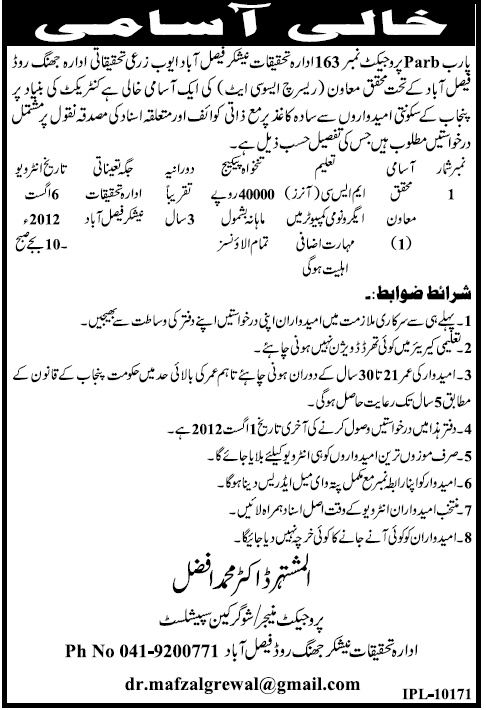 خالی آسامی
پارب Parb پروجیکٹ نمبر 163 ادارہ تحقیقات نیشکر فیصل آباد ایوب زرعی تحقیقاتی ادارہ جھنگ روڈ
فیصل آباد کے تحت محقق معاون (ریسرچ ایسوسی ایٹ) کی ایک آسامی خالی ہے کنٹریکٹ کی بنیاد پر
پنجاب کے سکونتی امیدواروں سے سادہ کاغذ پر مع ذاتی کوائف اور متعلقہ اسناد کی مصدقہ نقول پر مشتمل
درخواستیں مطلوب ہیں جس کی تفصیل حسب ذیل ہے۔
نمبر شمار آسامی تعلیم تنخواہ پیکیج دورانیہ جگہ تعیناتی تاریخ انٹرویو
1 محقق ایم ایس سی (آنرز) 40000 روپے تقریباً ادارہ تحقیقات 6 اگست
معاون ایگرونومی کمپیوٹر میں ماہانہ بشمول 3 سال نیشکر فیصل آباد 2012ء
(1) مہارت اضافی تمام الاؤنسز ۔10 بجے صبح
اہلیت ہوگی
شرائط ضوابط:۔
1۔ پہلے ہی سے سرکاری ملازمت میں امیدواران اپنی درخواستیں اپنے دفتر کی وساطت سے بھیجیں۔
2۔ تعلیمی کیریئر میں کوئی تھرڈ ڈویژن نہیں ہونی چاہئے۔
3۔ امیدوار کی عمر 21 تا 30 سال کے دوران ہونی چاہئے تاہم عمر کی بالائی حد میں حکومت پنجاب کے قانون کے
مطابق 5 سال تک رعایت حاصل ہوگی۔
4۔ دفتر ہذا میں درخواستیں وصول کرنے کی آخری تاریخ 1 اگست 2012 ہے۔
5۔ صرف موزوں ترین امیدواروں کو ہی انٹرویو کیلئے بلایا جائے گا۔
6۔ امیدوار کو اپنا رابطہ نمبر مع مکمل پتہ و ای میل ایڈریس دینا ہوگا۔
7۔ منتخب امیدواران انٹرویو کے وقت اصل اسناد ہمراہ لائیں۔
8۔ امیدواران کو کوئی آنے جانے کا کوئی خرچہ نہیں دیا جائیگا۔
المشتہر ڈاکٹر محمد افضل
پروجیکٹ منیجر/شوگر کین سپیشلسٹ
ادارہ تحقیقات نیشکر جھنگ روڈ فیصل آباد Ph No 041-9200771
dr.mafzalgrewal@gmail.com
IPL-10171